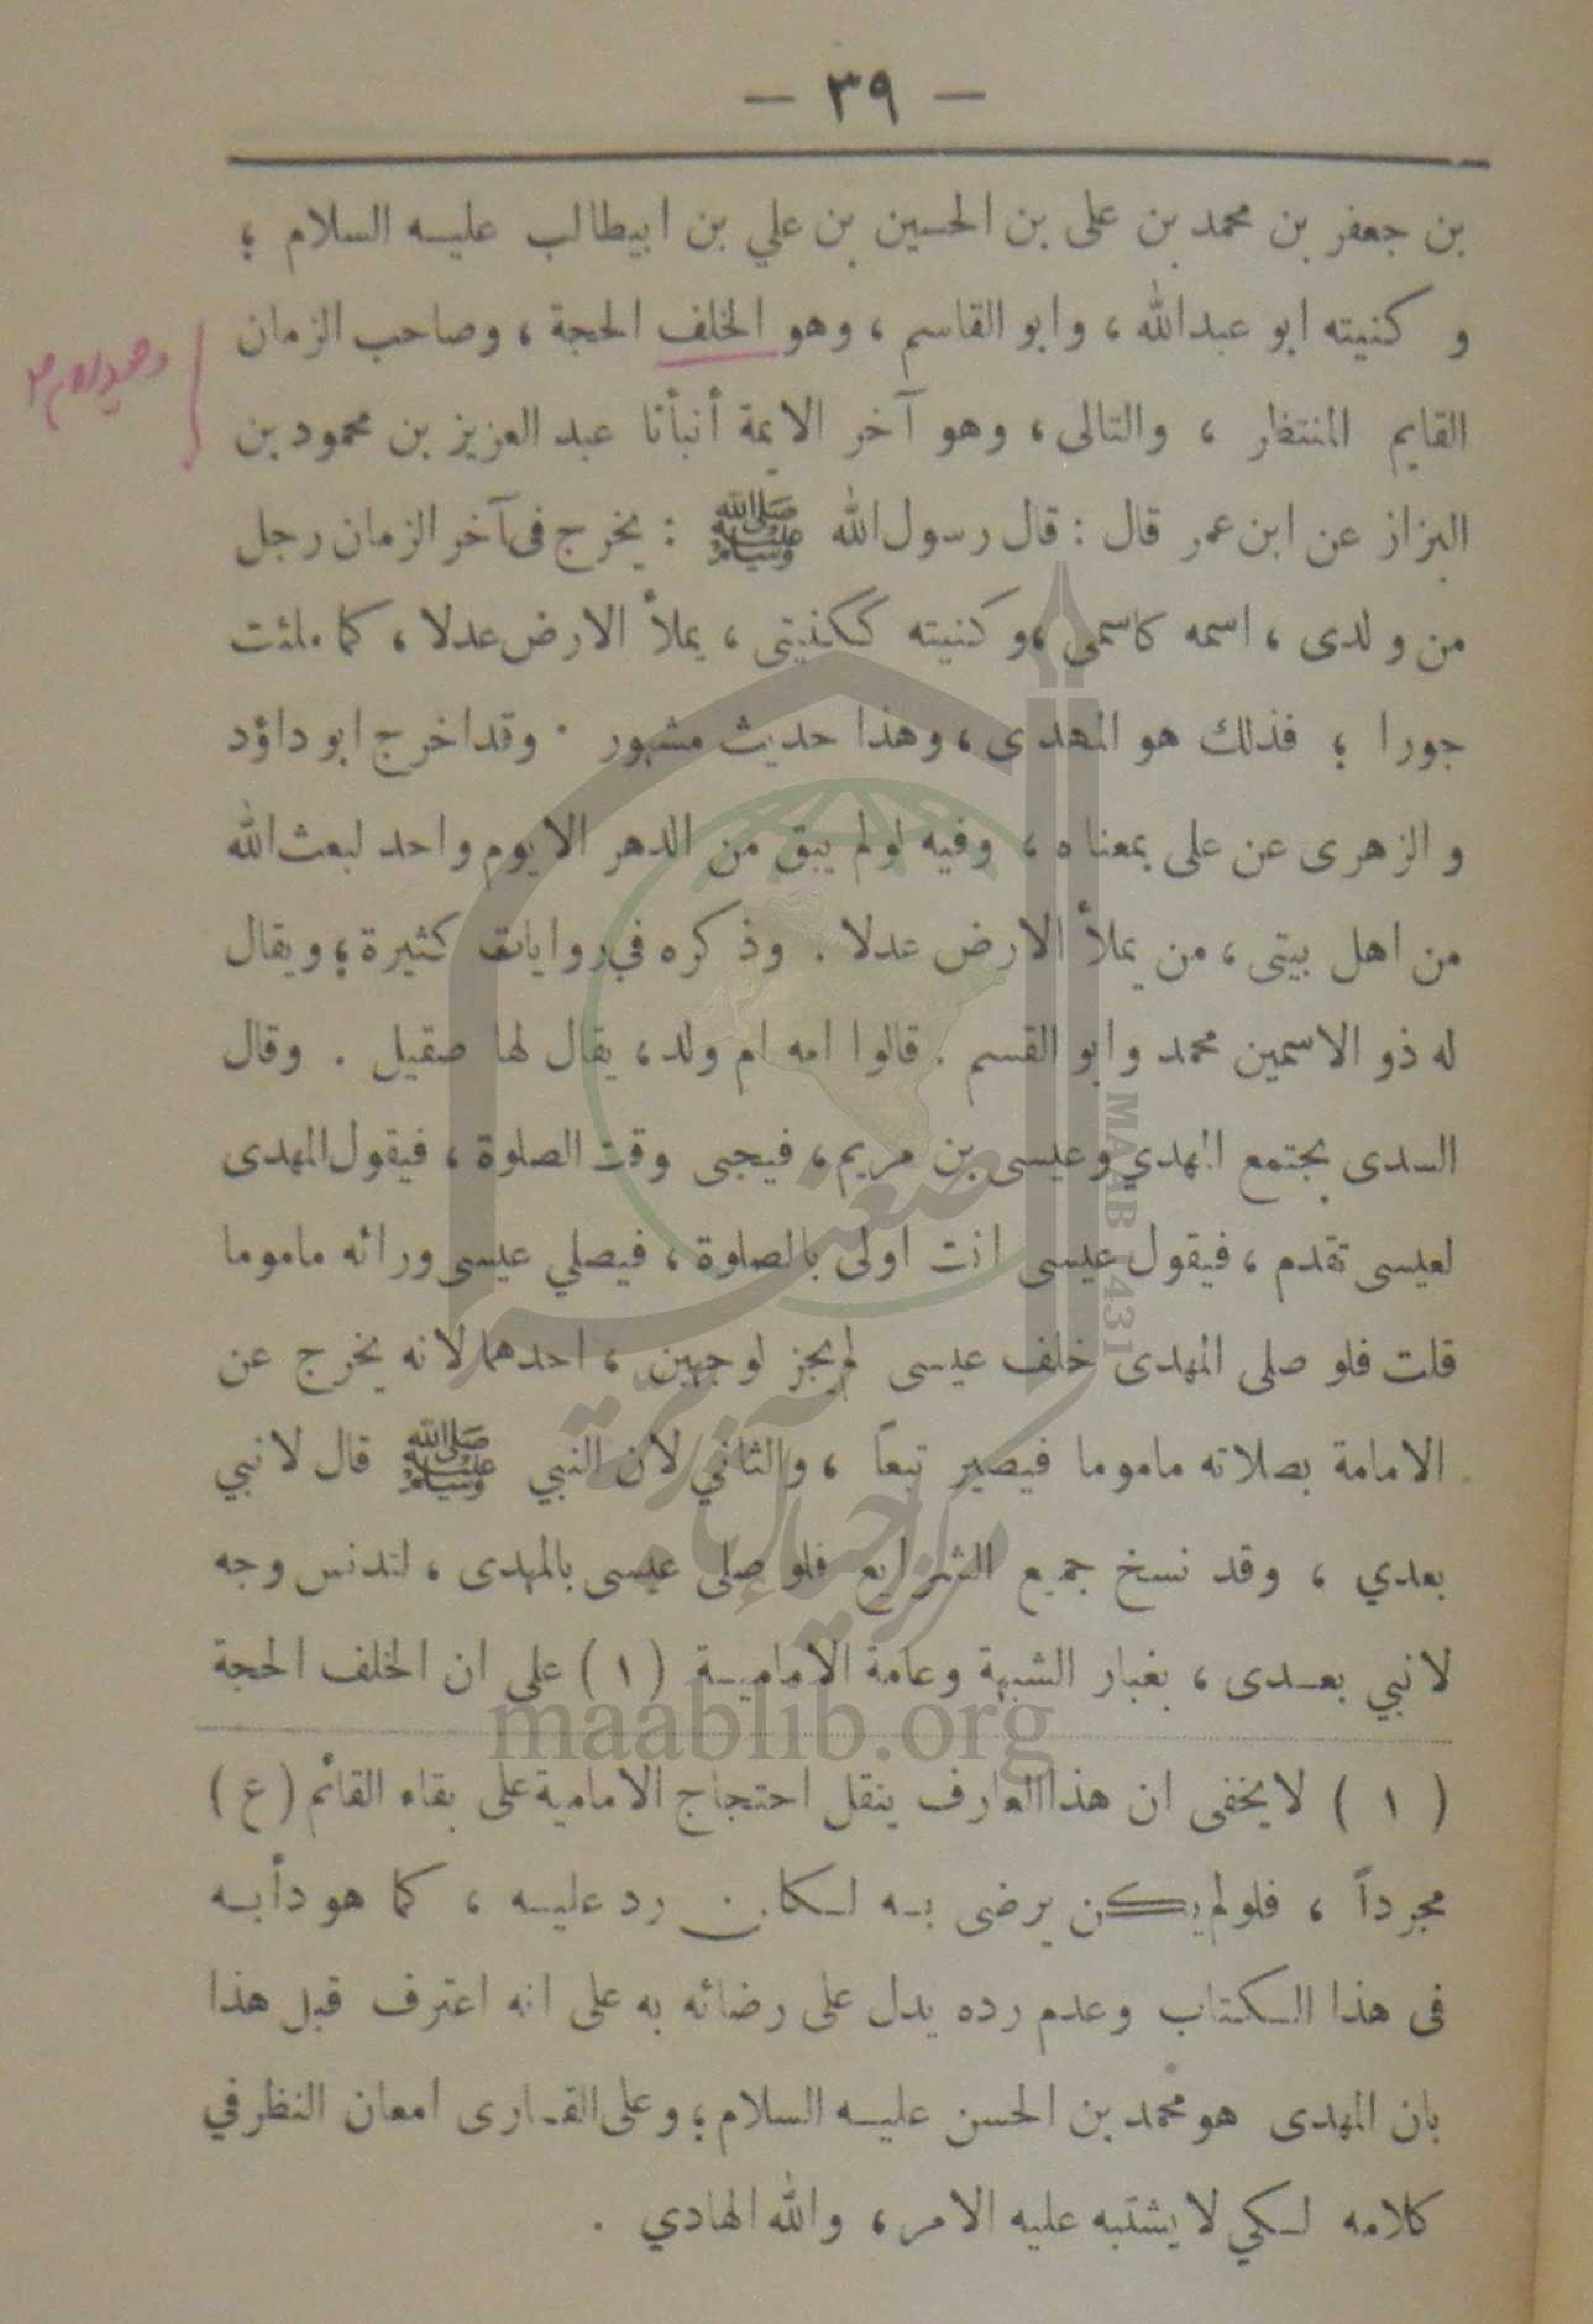 — ٣٩ —
بن جعفر بن محمد بن على بن الحسين بن علي بن ابيطالب عليه السلام ؛
و كنيته ابو عبدالله ، وابو القاسم ، وهو الخلف الحجة ، وصاحب الزمان
القايم المنتظر ، والتالى ، وهو آخر الايمة أنبأنا عبد العزيز بن محمود بن
البزاز عن ابن عمر قال : قال رسول الله ﷺ : يخرج فى آخر الزمان رجل
من ولدى ، اسمه كاسمى ، و كنيته ككنيتى ، يملأ الارض عدلا ، كما ملئت
جورا ؛ فذلك هو المهدى ، وهذا حديث مشهور . وقد اخرج ابو داؤد
و الزهرى عن على بمعناه ، وفيه لولم يبق من الدهر الا يوم واحد لبعث الله
من اهل بيتى ، من يملأ الارض عدلا . وذكره في روايات كثيرة ؛ ويقال
له ذو الاسمين محمد وابو القسم . قالوا امه ام ولد ، يقال لها صقيل . وقال
السدى يجتمع المهدي وعيسى بن مريم ، فيجى وقت الصلوة ، فيقول المهدى
لعيسى تقدم ، فيقول عيسى انت اولى بالصلوة ، فيصلي عيسى ورائه ماموما
قلت فلو صلى المهدى خلف عيسى لم يجز لوجهين ، احدهما لانه يخرج عن
الامامة بصلاته ماموما فيصير تبعاً ، والثاني لان النبي ﷺ قال لا نبي
بعدي ، وقد نسخ جميع الشرايع فلو صلى عيسى بالمهدى ، لتدنس وجه
لا نبي بعدى ، بغبار الشبهة وعامة الامامية (١) على ان الخلف الحجة
(١) لا يخفى ان هذا العارف ينقل احتجاج الامامية على بقاء القائم (ع)
مجرداً ، فلو لم يكن يرضى به لكان رد عليه ، كما هو دأبه
فى هذا الكتاب وعدم رده يدل على رضائه به على انه اعترف قبل هذا
بان المهدى هو محمد بن الحسن عليه السلام ؛ وعلى القارى امعان النظر في
كلامه لكي لا يشتبه عليه الامر ، والله الهادي .
MAAB 1431
maablib.org